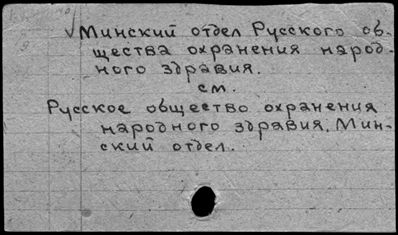 Минский отдел Русского об-
щества охранения народ-
ного здравия.
см.
Русское общество охранения
народного здравия. Мин-
ский отдел.